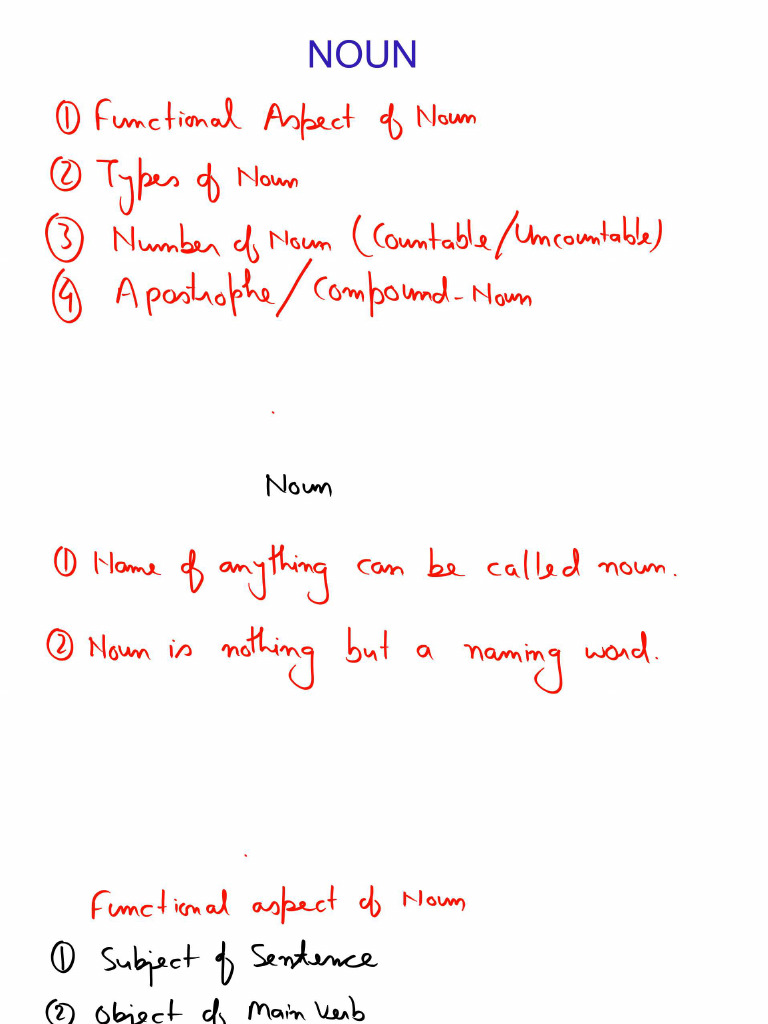 NOUN
① Functional Aspect of Noun
② Types of Noun
③ Number of Noun (Countable/Uncountable)
④ Apostrophe/Compound-Noun
Noun
① Name of anything can be called noun.
② Noun is nothing but a naming word.
Functional aspect of Noun
① Subject of Sentence
② Object of Main Verb